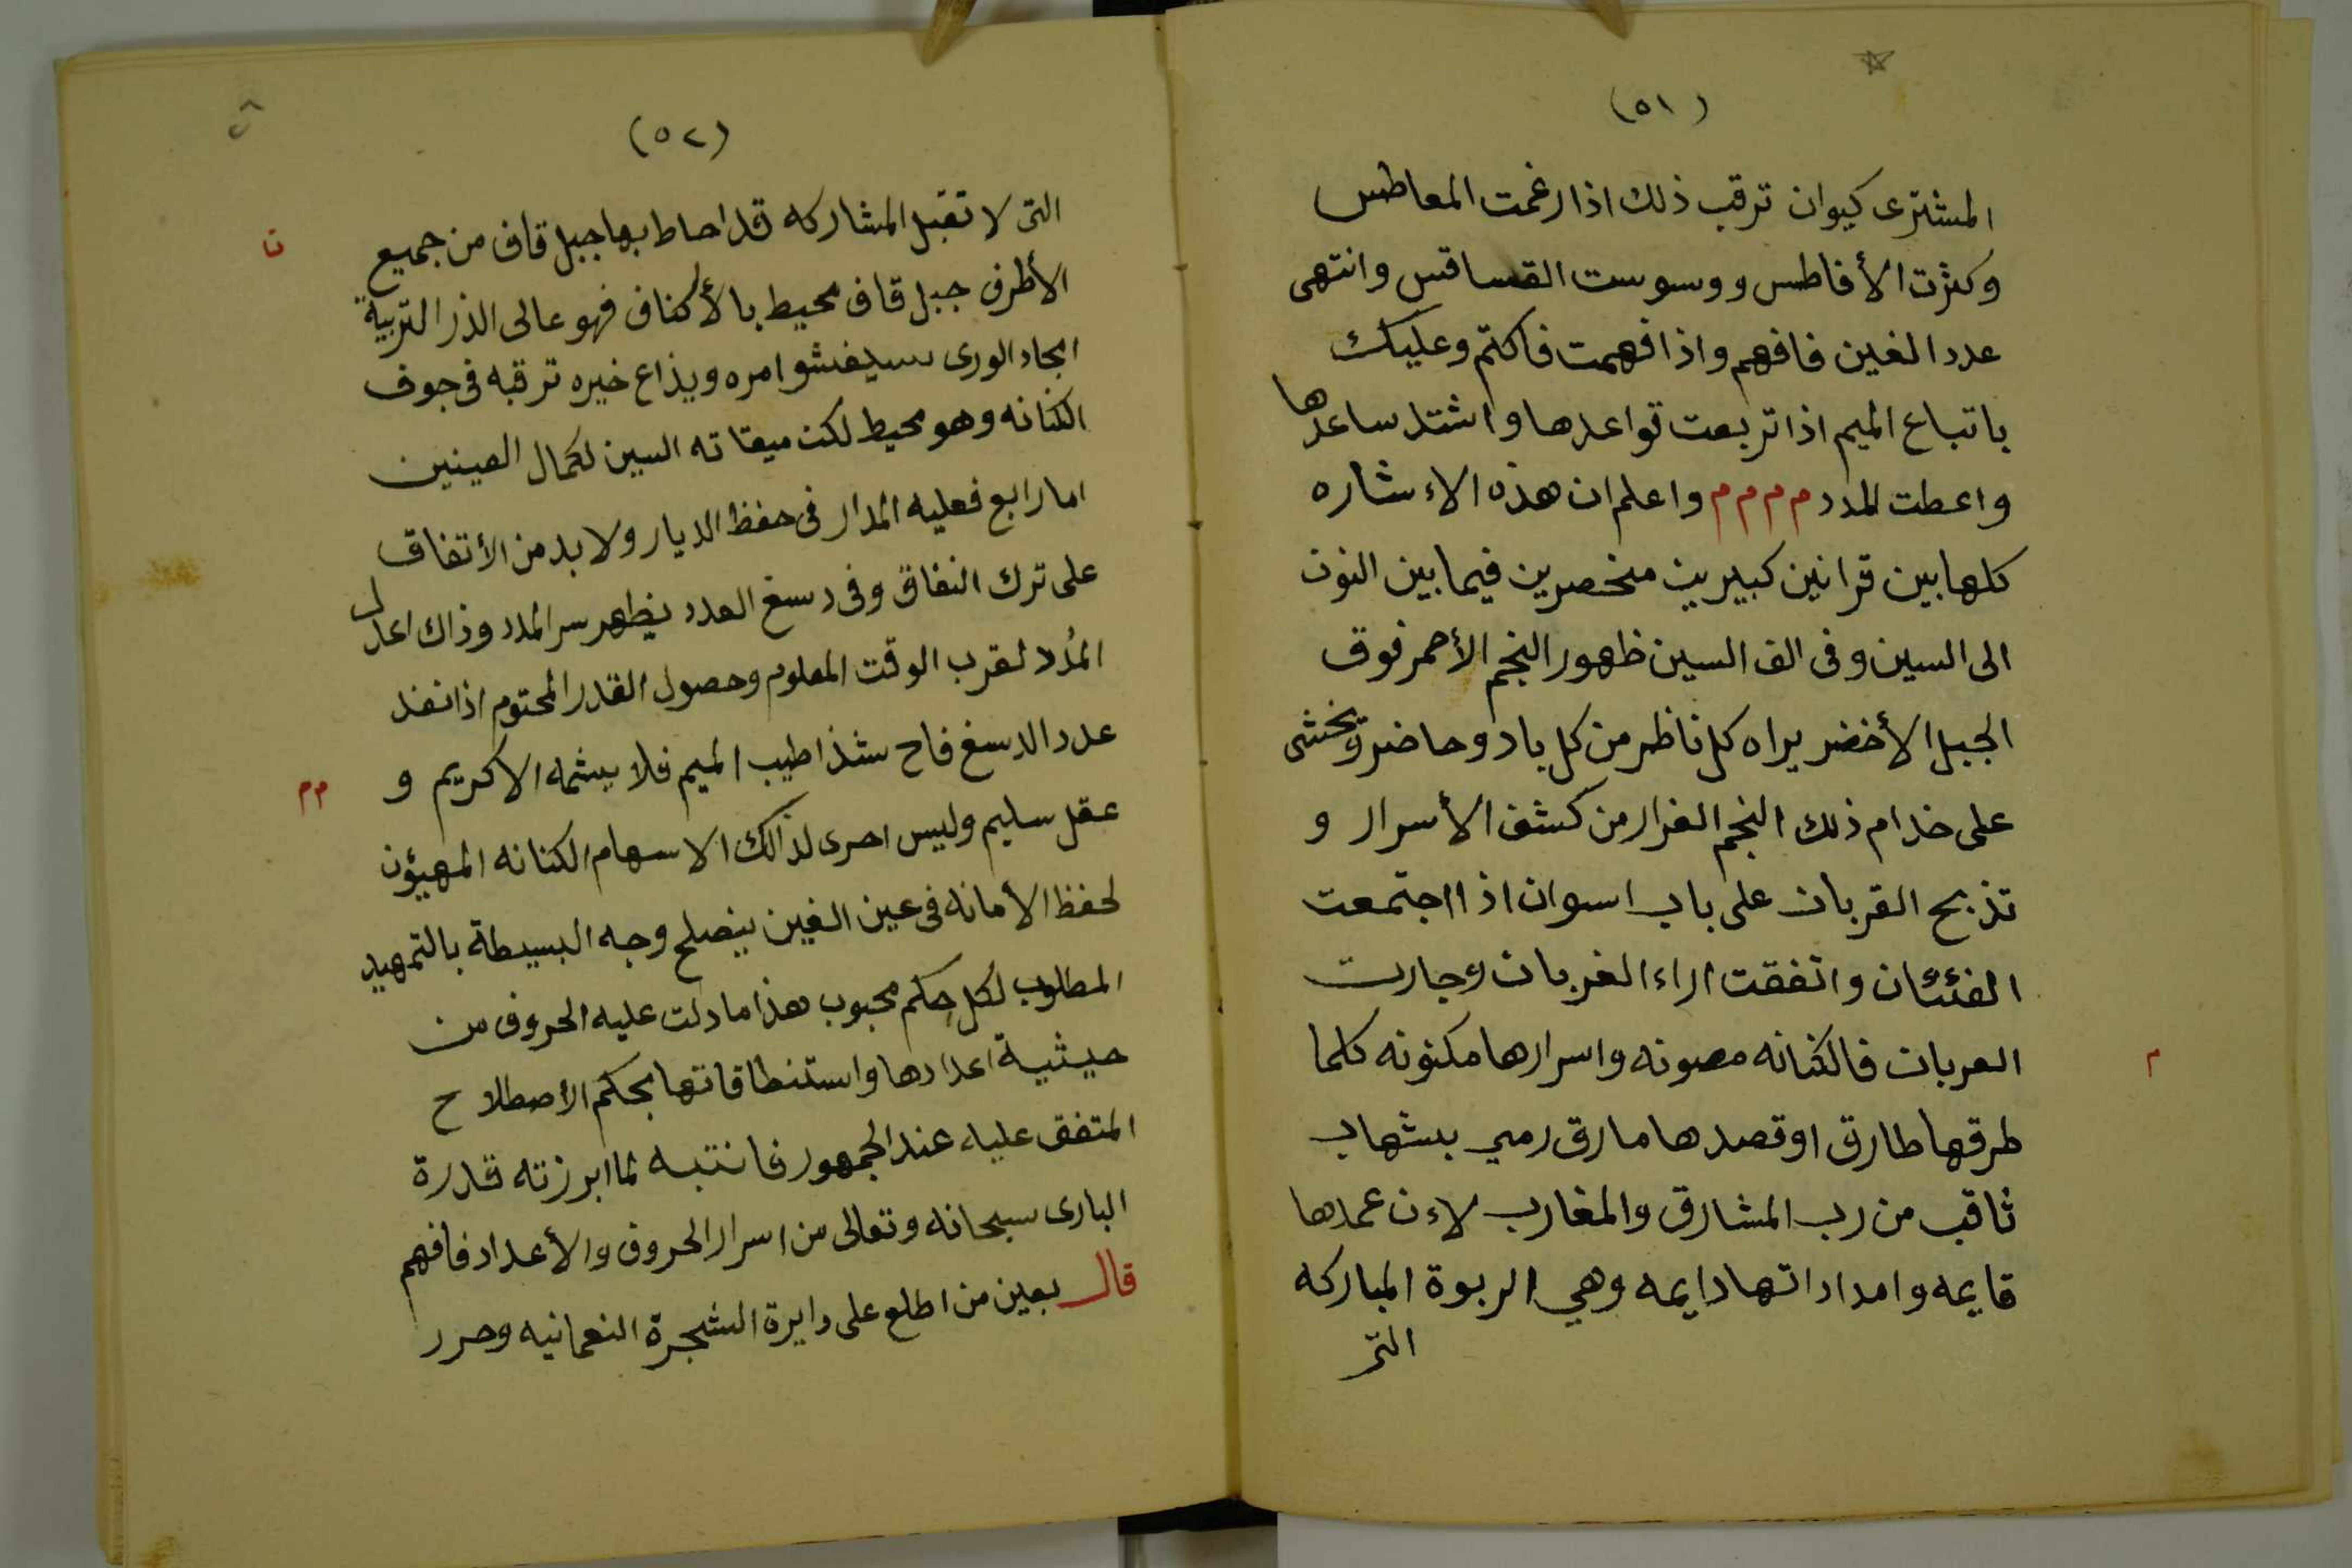 (٥١)
المشترى كيوان ترقب ذلك اذا رغمت المعاطس
وكثرت الأفاطس ووسوست القساقس وانتهى
عدد الغين فافهم واذا فهمت فاكتم وعليك
باتباع الميم اذا تربعت قواعدها واشتد ساعدها
واعطت المدد م م م م واعلم ان هذه الاءشاره
كلها بين قرانين كبيرين منحصرين فيما بين النون
الى السين وفى الف السين ظهور النجم الأحمر فوق
الجبل الأخضر يراه كل ناظر من كل باد وحاضر ويخشى
على خدام ذلك النجم الغرار من كشف الأسرار و
تذبح القربان على باب اسوان اذا اجتمعت
الفئتان واتفقت اراء الغربان وجارت
العربان فالكنانه مصونه واسرارها مكنونه كلما
م
طرقها طارق اوقصدها مارق رمي بشهاب
ثاقب من رب المشارق والمغارب لاءن عمدها
قايمه وامداداتها دايمه وهي الربوة المباركه
التى
(٥٢)
التى لا تقبل المشاركه قد احاط بها جبل قاف من جميع
ن
الأطرف جبل قاف محيط بالأكناف فهو عالى الذر التربية
انجاد الورى سيفشوا امره ويذاع خيره ترقبه فى جوف
الكنانه وهو محيط لكن ميقاته السين لكمال العينين
اما رابع فعليه المدار فى حفظ الديار ولابد من الأتفاق
على ترك النفاق وفى دسغ العدد يظهر سر المدد وذاك اعدل
المُدد لقرب الوقت المعلوم وحصول القدر المحتوم اذا نفذ
عدد الدسغ فاح شذا طيب الميم فلا يشمه الا كريم و
م م
عقل سليم وليس احرى لذالك الا سهام الكنانه المهيؤن
لحفظ الأمانه فى عين الغين ينصلح وجه البسيطة بالتمهيد
المطلوب لكل حكم محبوب هذا ما دلت عليه الحروف من
حيثية اعدادها واستنطاقاتها بحكم الأصطلاح
المتفق عليه عند الجمهور فانتبه لما ابرزته قدرة
البارى سبحانه وتعالى من اسرار الحروف والأعداد فافهم
قال بعين من اطلع على دايرة الشجرة النعمانيه وحرر